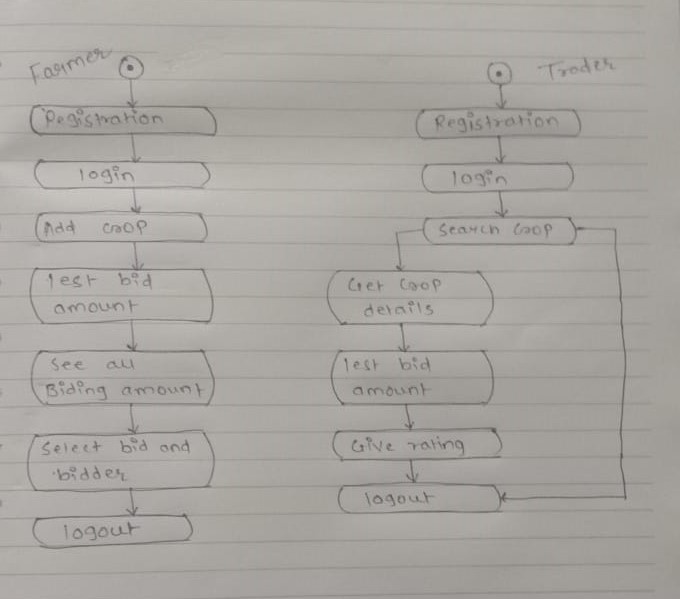 Farmer
Registration
login
Add crop
lest bid
amount
see all
Biding amount
select bid and
bidder
logout
Trader
Registration
login
search crop
Get crop
details
lest bid
amount
Give rating
logout